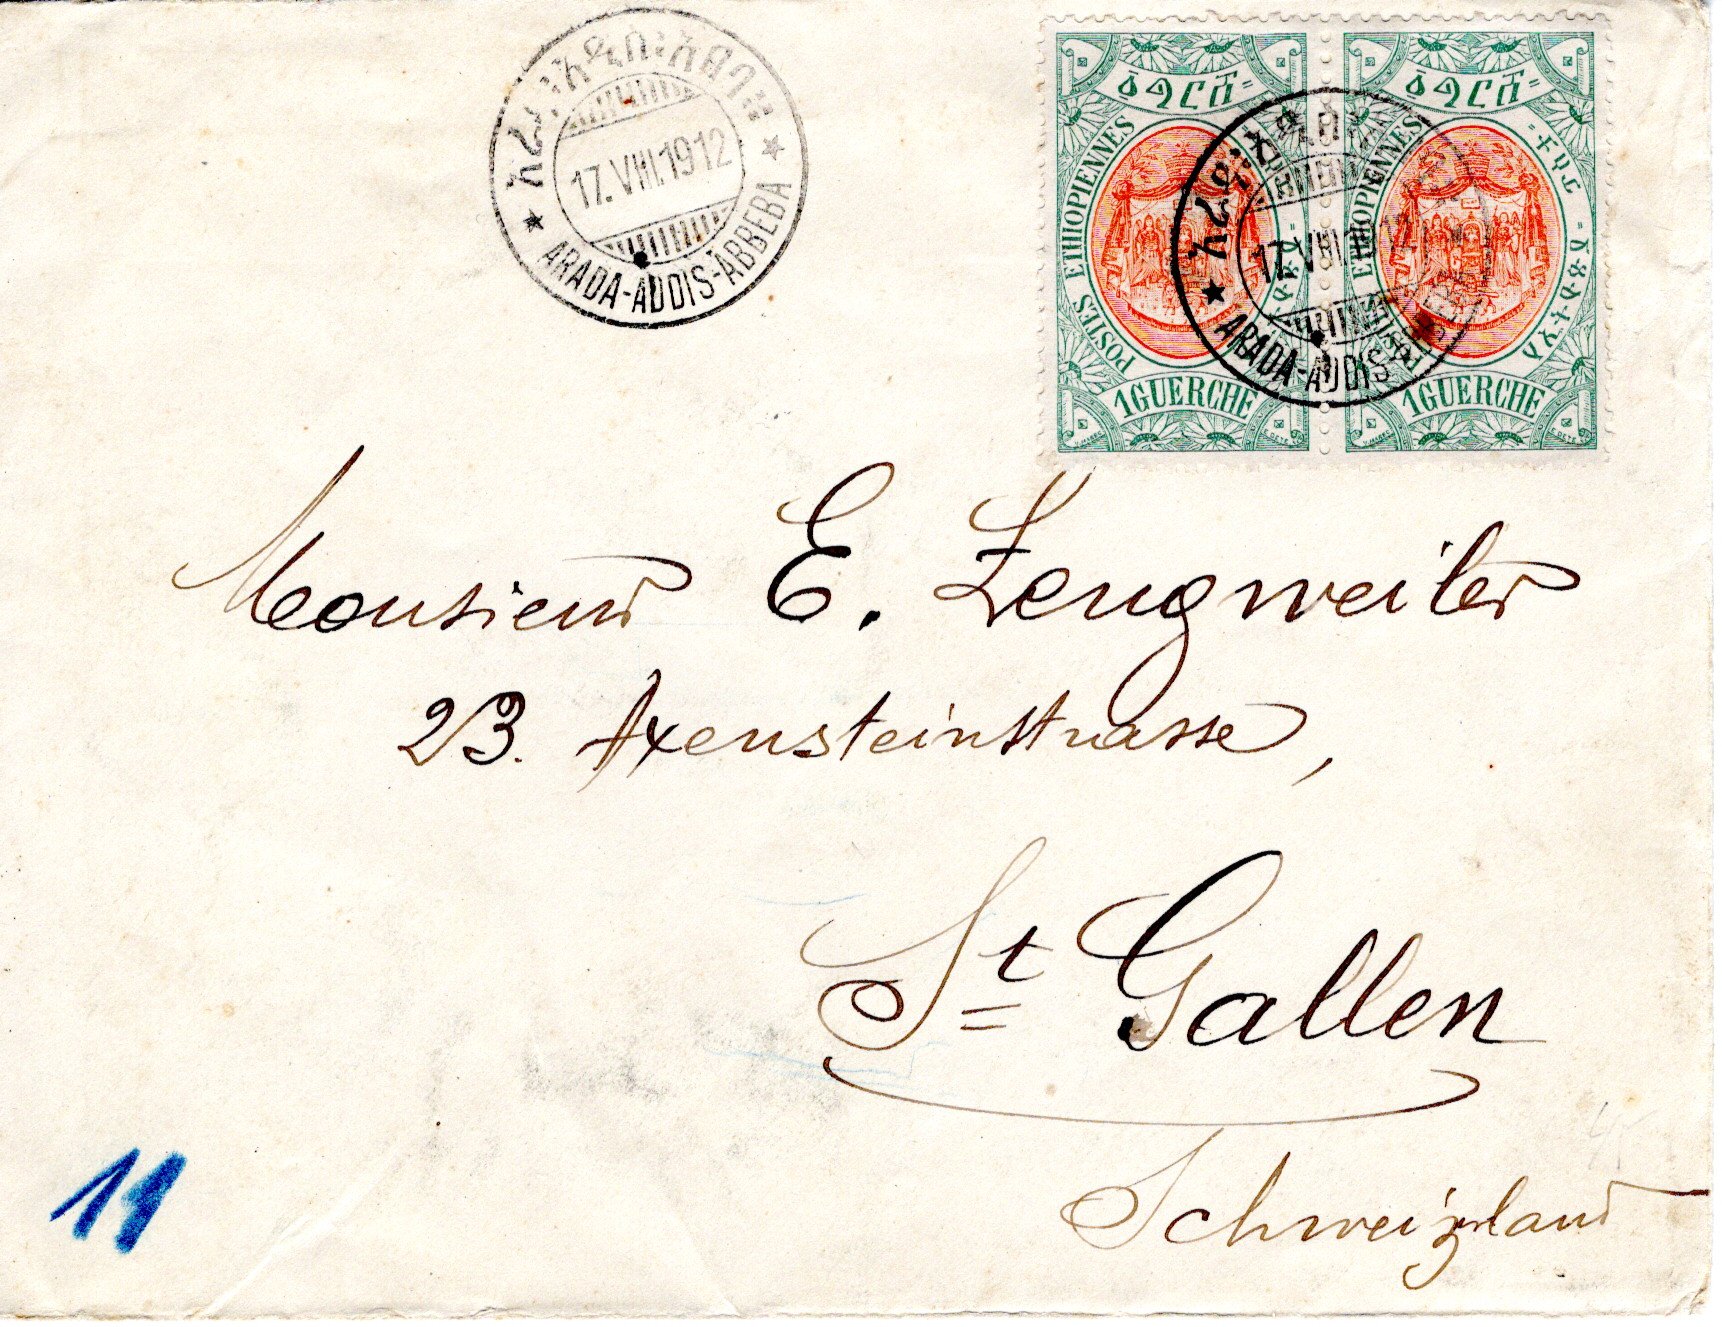 አራዳ፡አዲስ፡አበባ
17.VIII.1912
ARADA-ADDIS-ABBEBA
POSTES ETHIOPIENNES
1 GUERCHE
POSTES ETHIOPIENNES
1 GUERCHE
17.VIII
ARADA-ADDIS-ABBEBA
Monsieur E. Zengweiler
23. Axensteinstrasse,
St Gallen
Schweizland
11